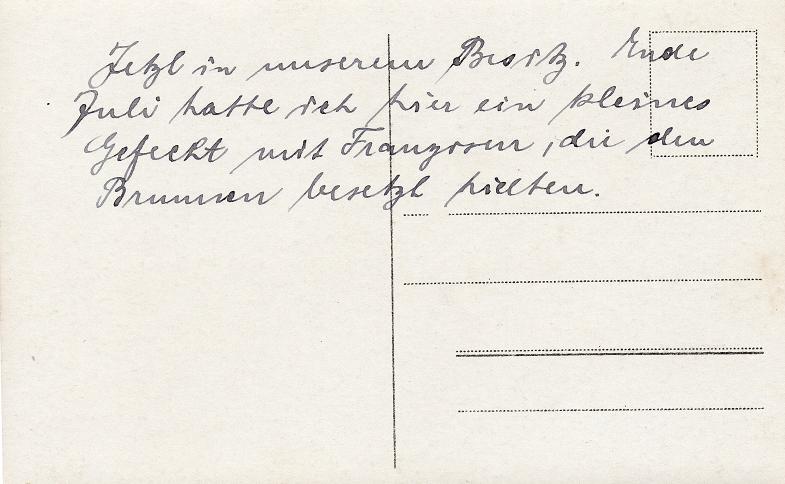 Jetzt in unserem Besitz. Ende
Juli hatte ich hier ein kleines
Gefecht mit Franzosen, die den
Brunnen besetzt hielten.